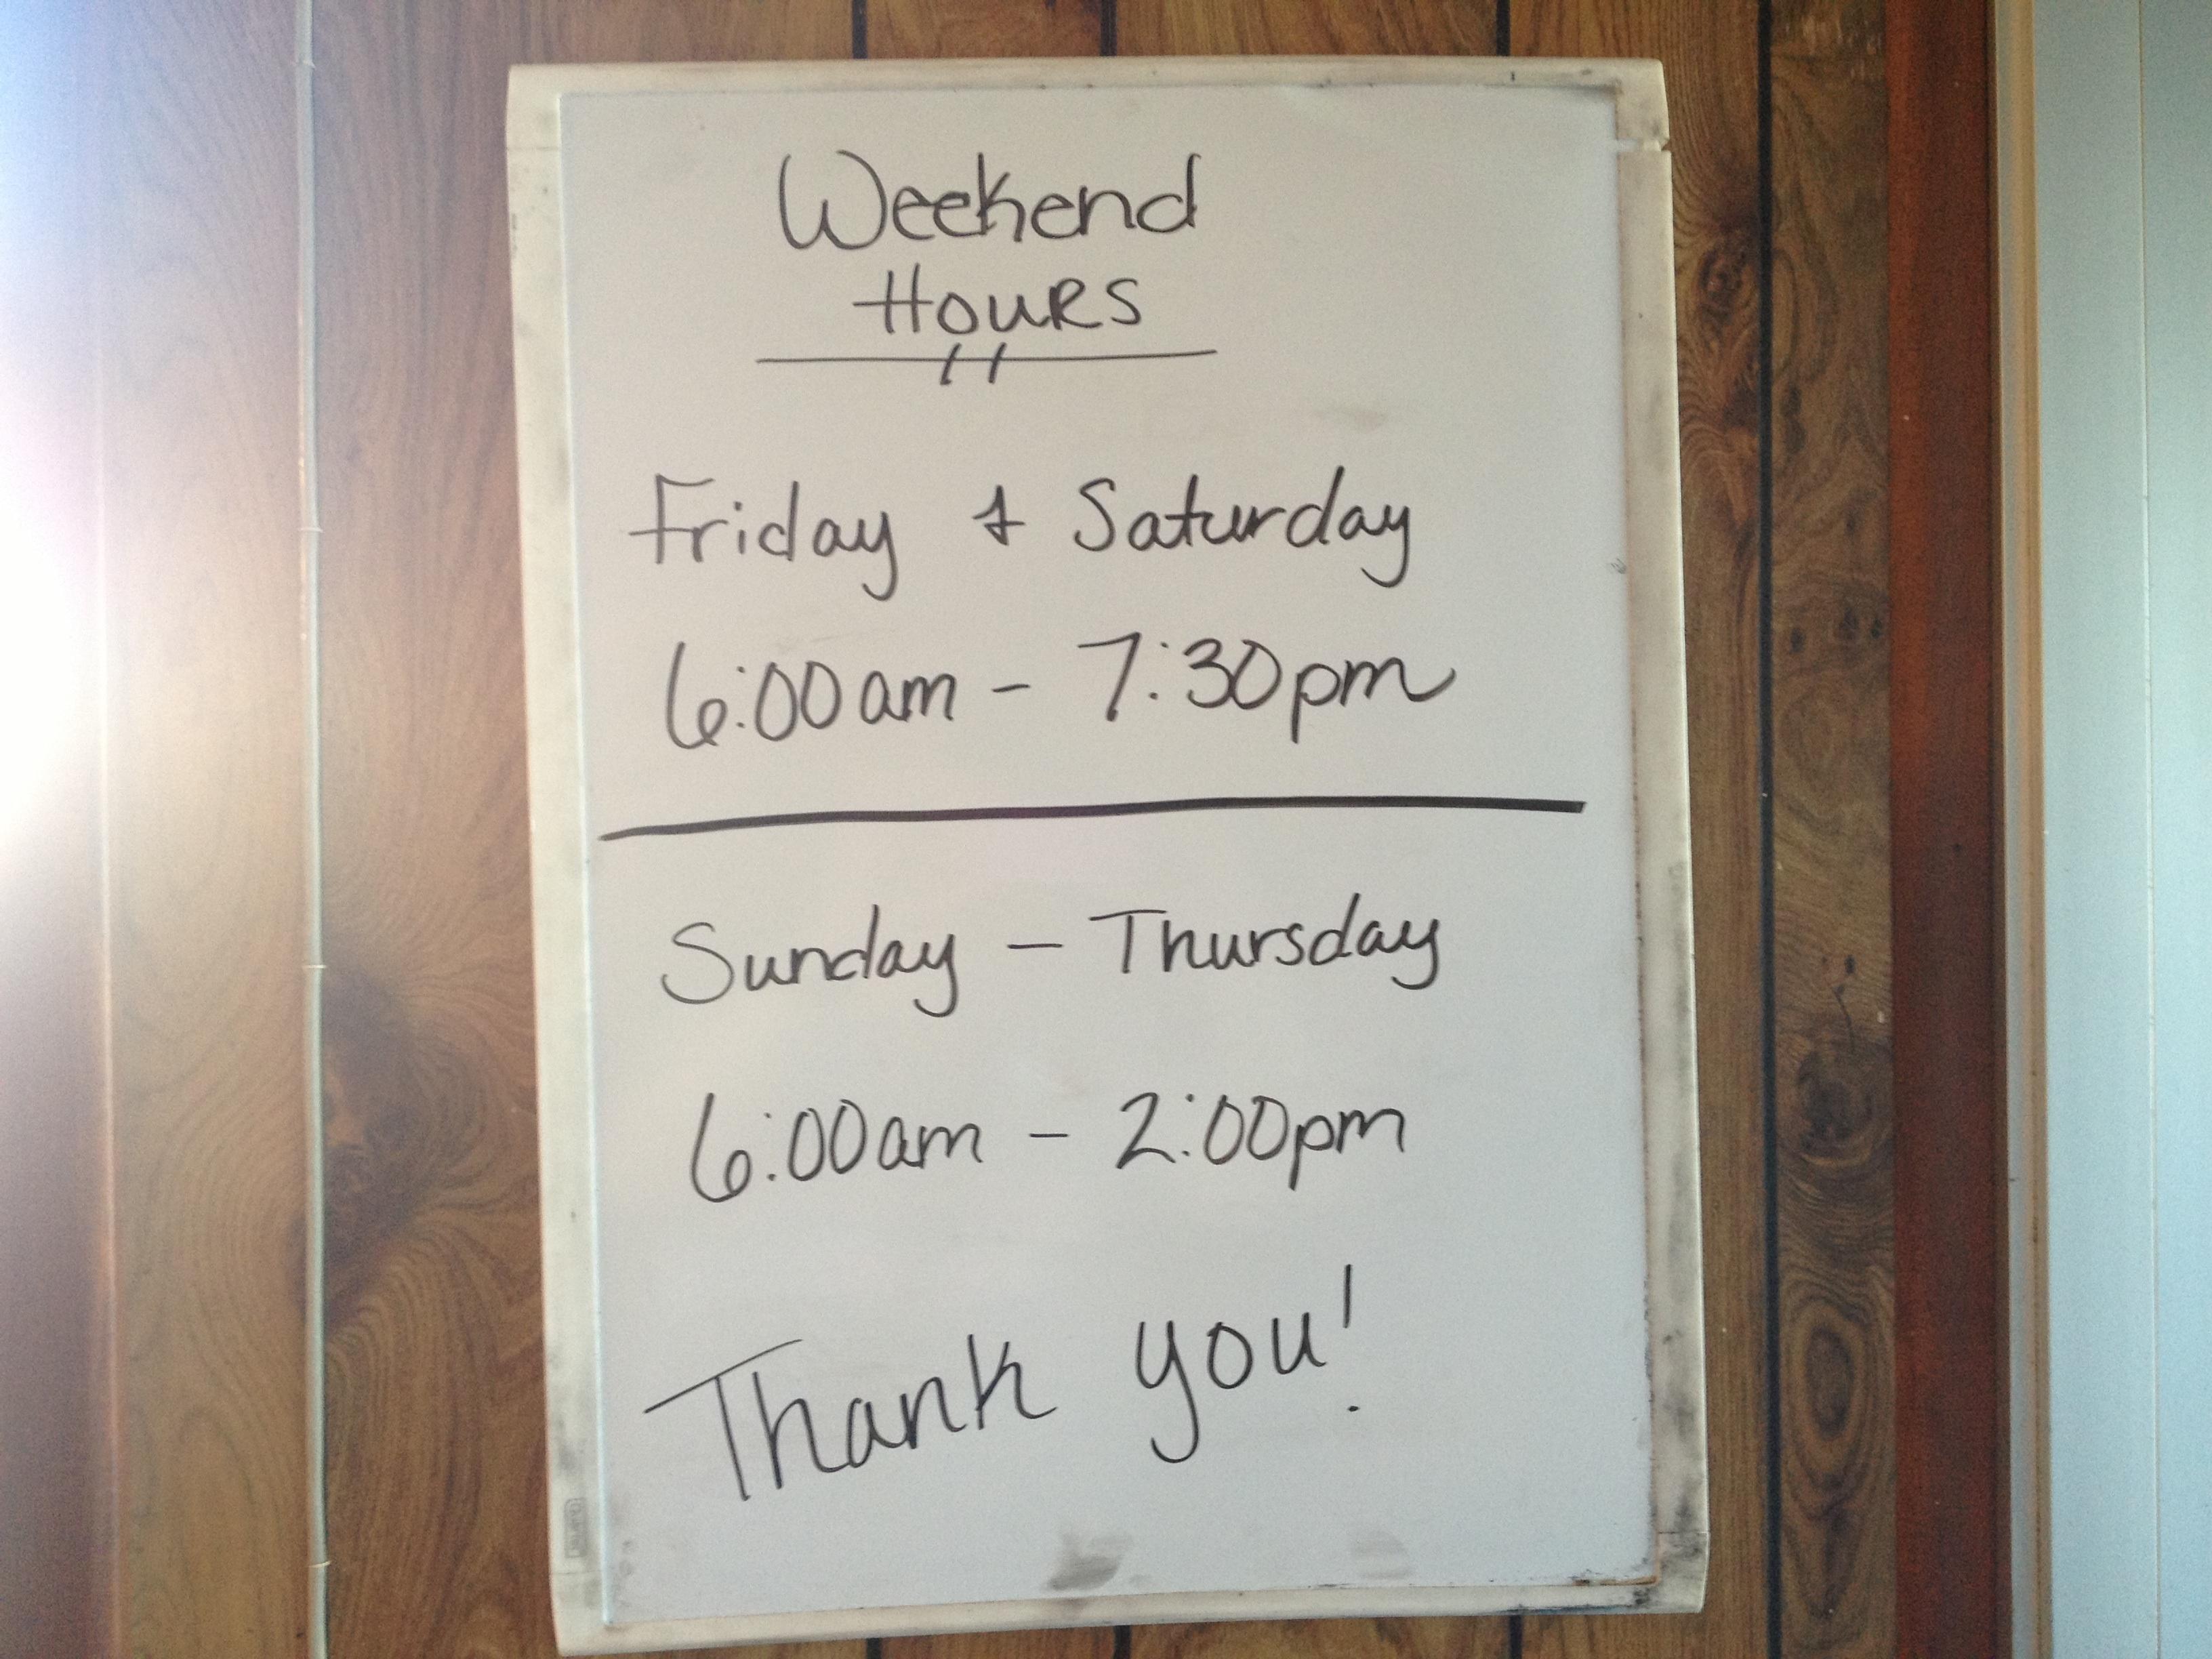 Weekend
Hours
Friday & Saturday
6:00am - 7:30pm
Sunday - Thursday
6:00am - 2:00pm
Thank you!